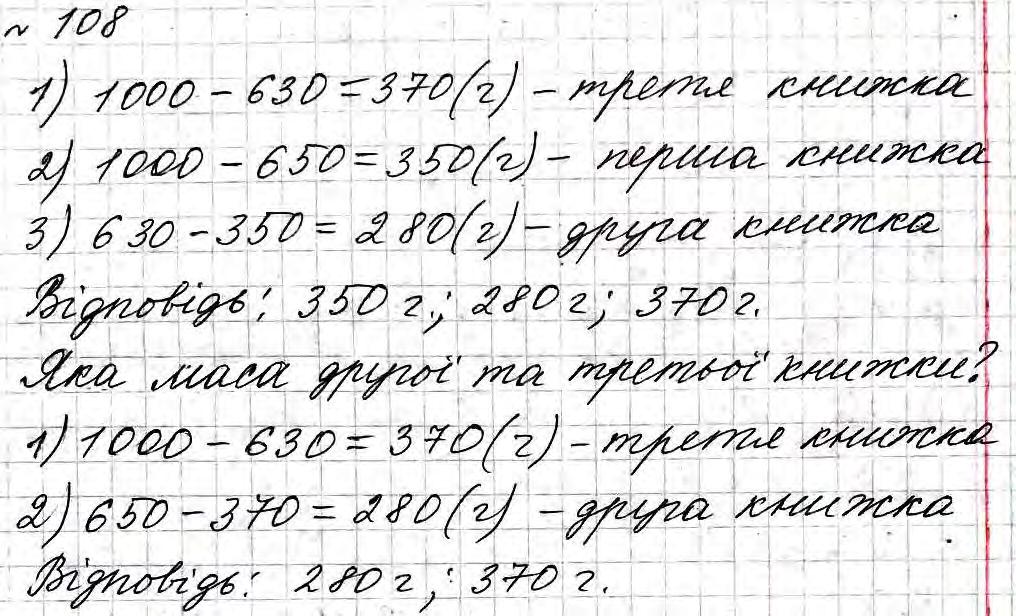 № 108
1) 1000 - 630 = 370 (г) - третя книжка
2) 1000 - 650 = 350 (г) - перша книжка
3) 630 - 350 = 280 (г) - друга книжка
Відповідь: 350 г.; 280 г; 370 г.
Яка маса другої та третьої книжки?
1) 1000 - 630 = 370 (г) - третя книжка
2) 650 - 370 = 280 (г) - друга книжка
Відповідь: 280 г; 370 г.